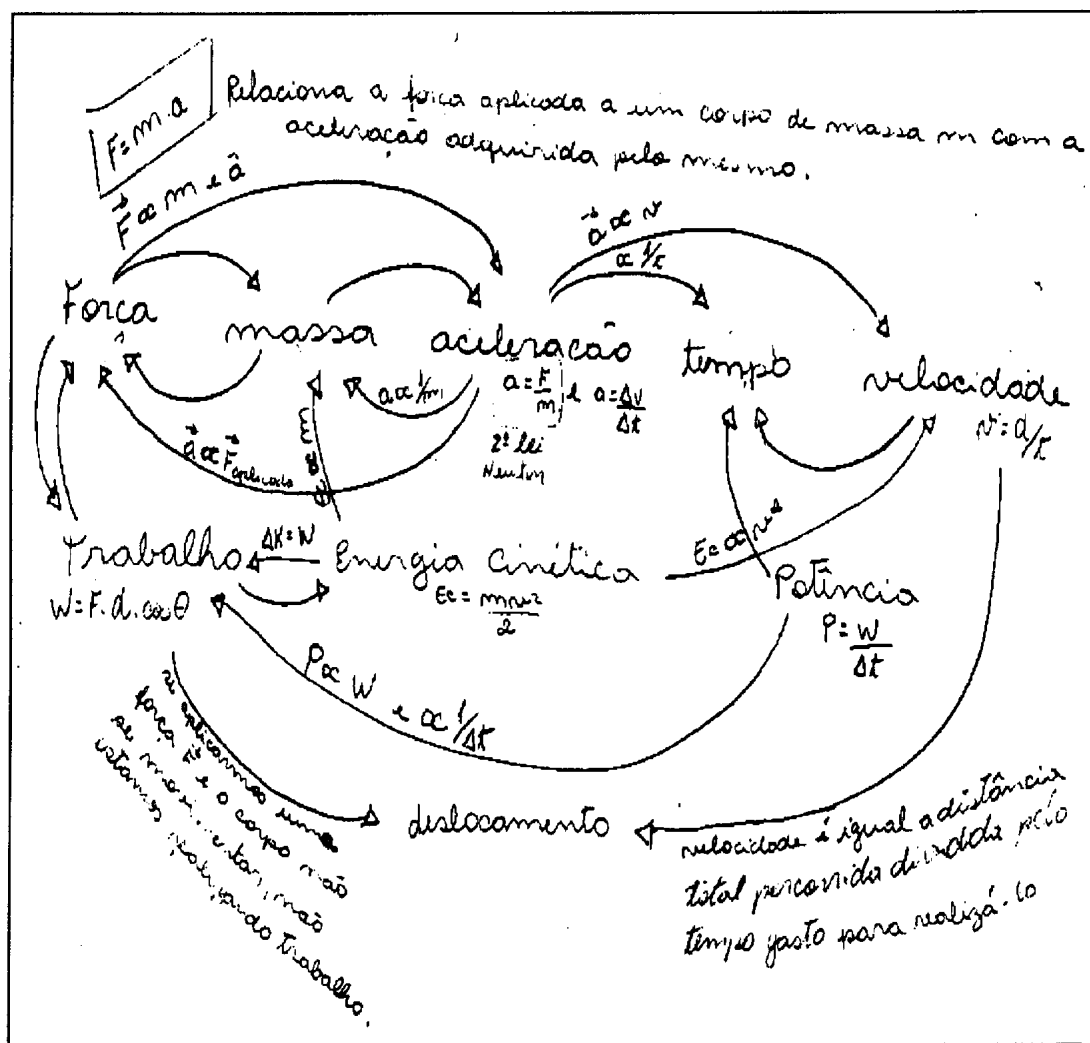 F=m.a
Relaciona a força aplicada a um corpo de massa m com a
aceleração adquirida pelo mesmo.
F⃗ ∝ m e a⃗
a⃗ ∝ v
∝ 1/t
Força
massa
aceleração
tempo
velocidade
a = F/m e a = Δv/Δt
2ª lei
Newton
v = d/t
a ∝ 1/m
a⃗ ∝ F⃗ aplicada
Trabalho
W = F.d.cos θ
ΔK = W
Energia Cinética
Ec = mv²/2
Potência
P = W/Δt
P ∝ W e ∝ 1/Δt
se aplicarmos uma
força F⃗ e o corpo não
se movimentar, não
estamos realizando trabalho.
deslocamento
velocidade é igual a distância
total percorrida dividida pelo
tempo gasto para realizá-lo